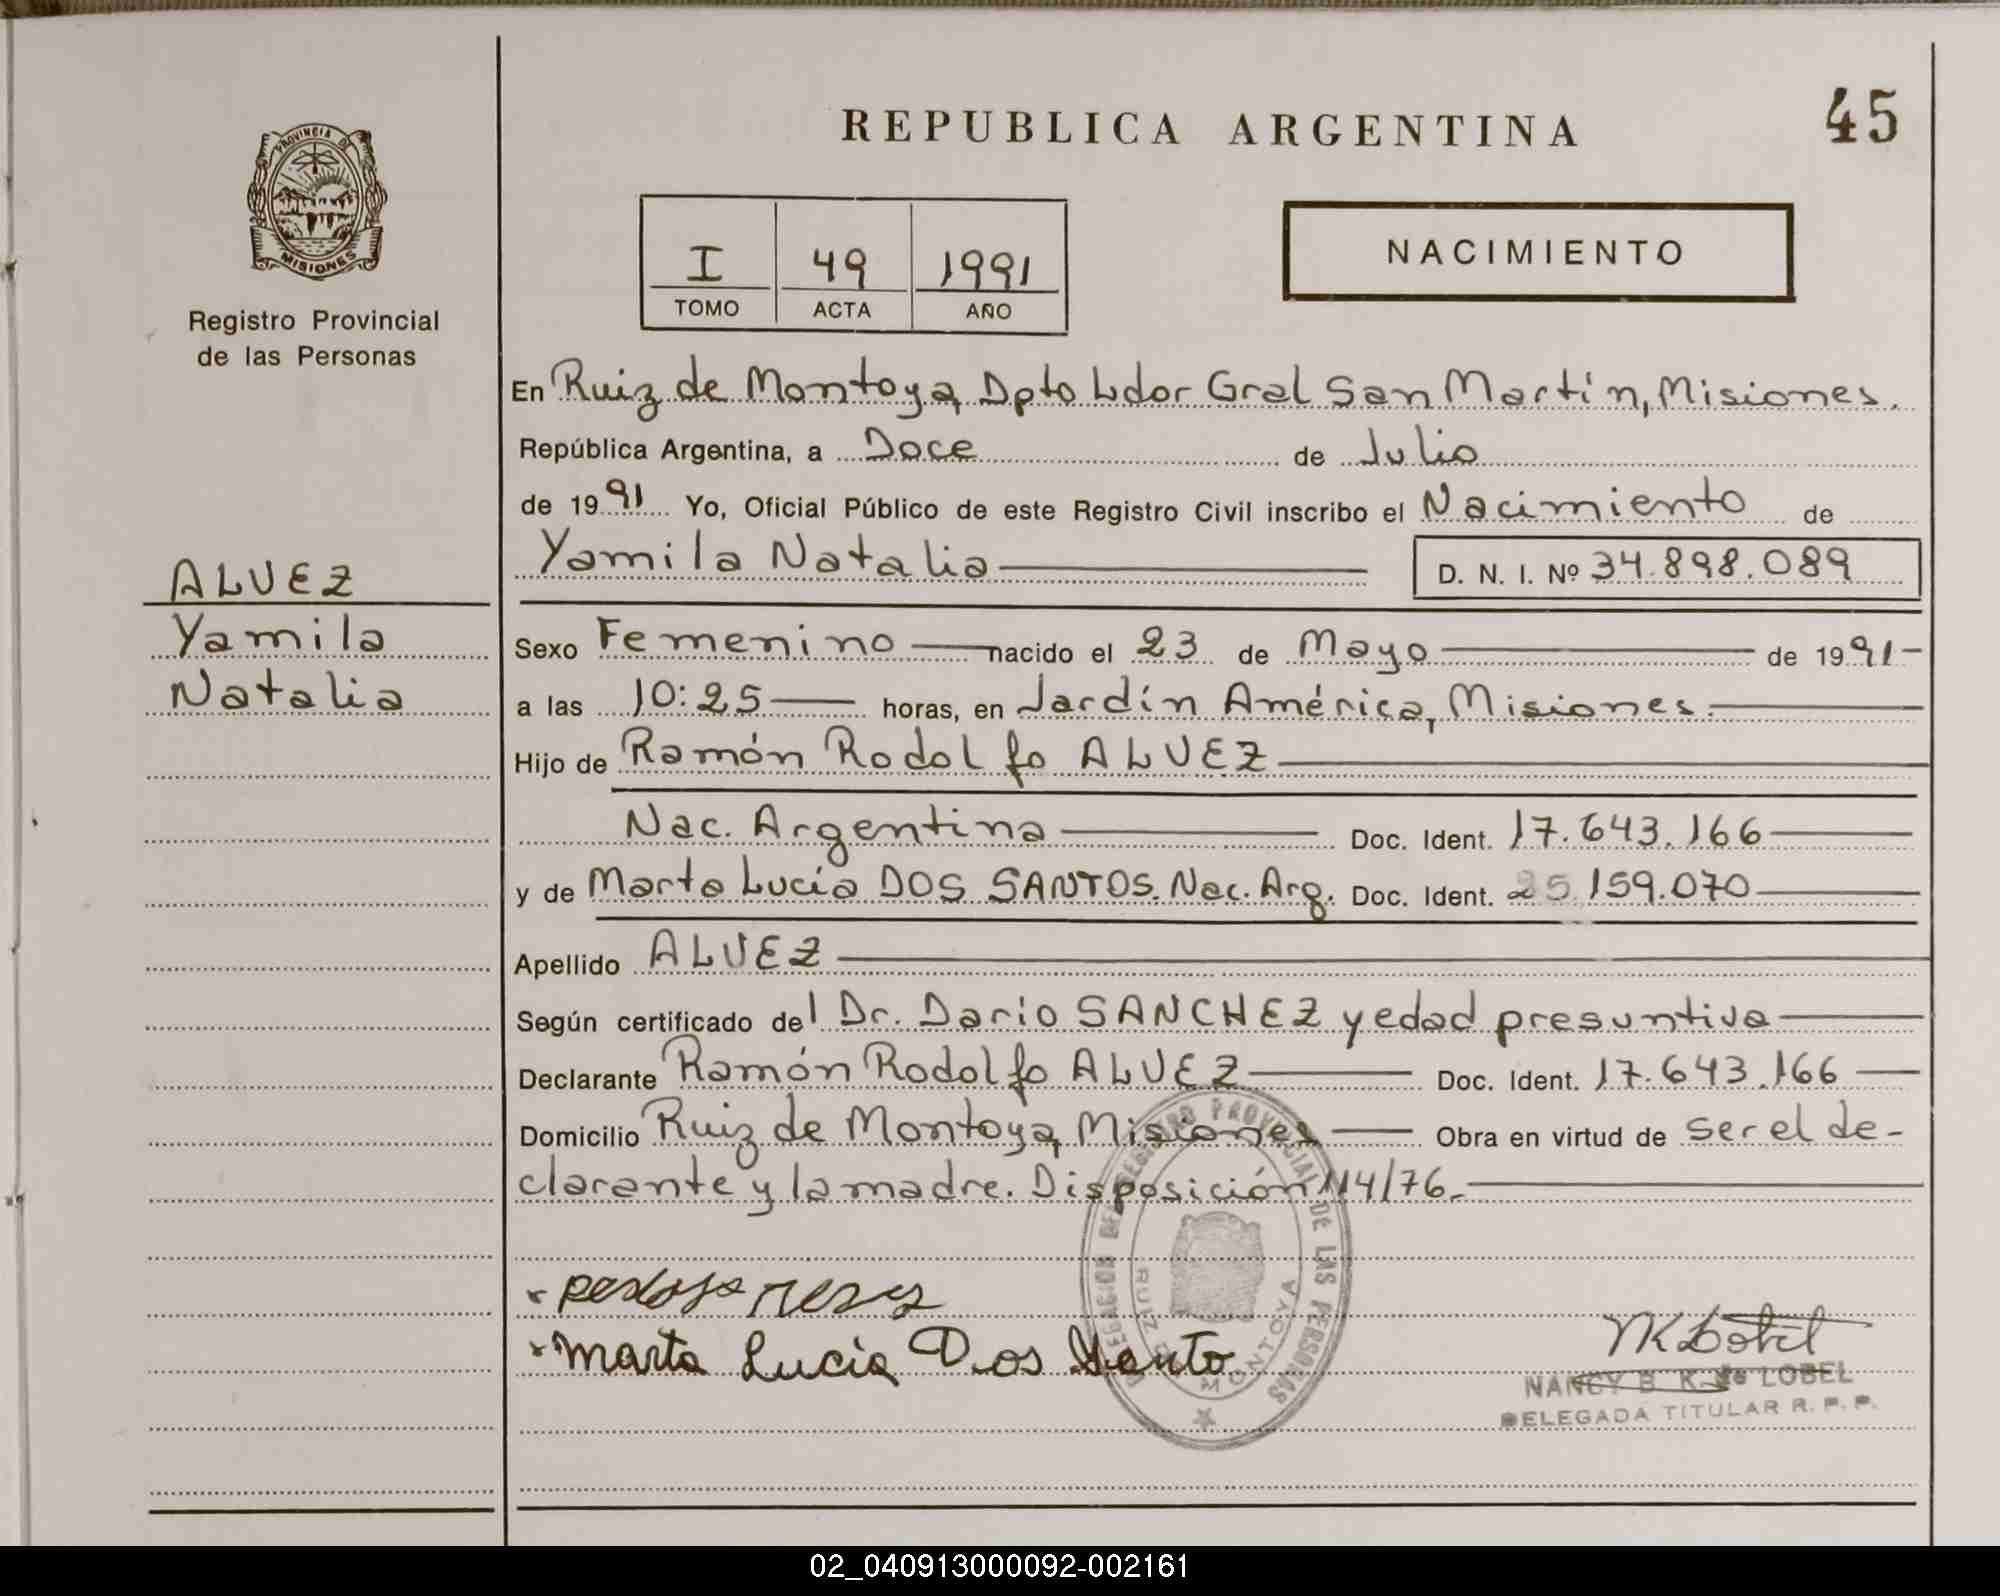 REPUBLICA ARGENTINA
45
PROVINCIA DE
MISIONES
Registro Provincial
de las Personas
I 49 1991
TOMO ACTA AÑO
NACIMIENTO
En Ruiz de Montoya, Dpto Ldor Gral San Martín, Misiones.
República Argentina, a Doce de Julio
de 1991 Yo, Oficial Público de este Registro Civil inscribo el Nacimiento de
Yamila Natalia D. N. I. Nº 34.898.089
ALVEZ
Yamila
Natalia
Sexo Femenino nacido el 23 de Mayo de 1991
a las 10:25 horas, en Jardín América, Misiones.
Hijo de Ramón Rodolfo ALVEZ
Nac. Argentina Doc. Ident. 17.643.166
y de Marta Lucía DOS SANTOS. Nac. Arg. Doc. Ident. 25.159.070
Apellido ALVEZ
Según certificado del Dr. Darío SANCHEZ y edad presuntiva
Declarante Ramón Rodolfo ALVEZ Doc. Ident. 17.643.166
Domicilio Ruiz de Montoya, Misiones Obra en virtud de ser el de-
clarante y la madre. Disposición 114/76.
DELEGACION DEL REGISTRO PROVINCIAL DE LAS PERSONAS
RUIZ DE MONTOYA
Marta Lucia Dos Santo
NANCY B. K. de LOBEL
DELEGADA TITULAR R. P. P.
02_040913000092-002161